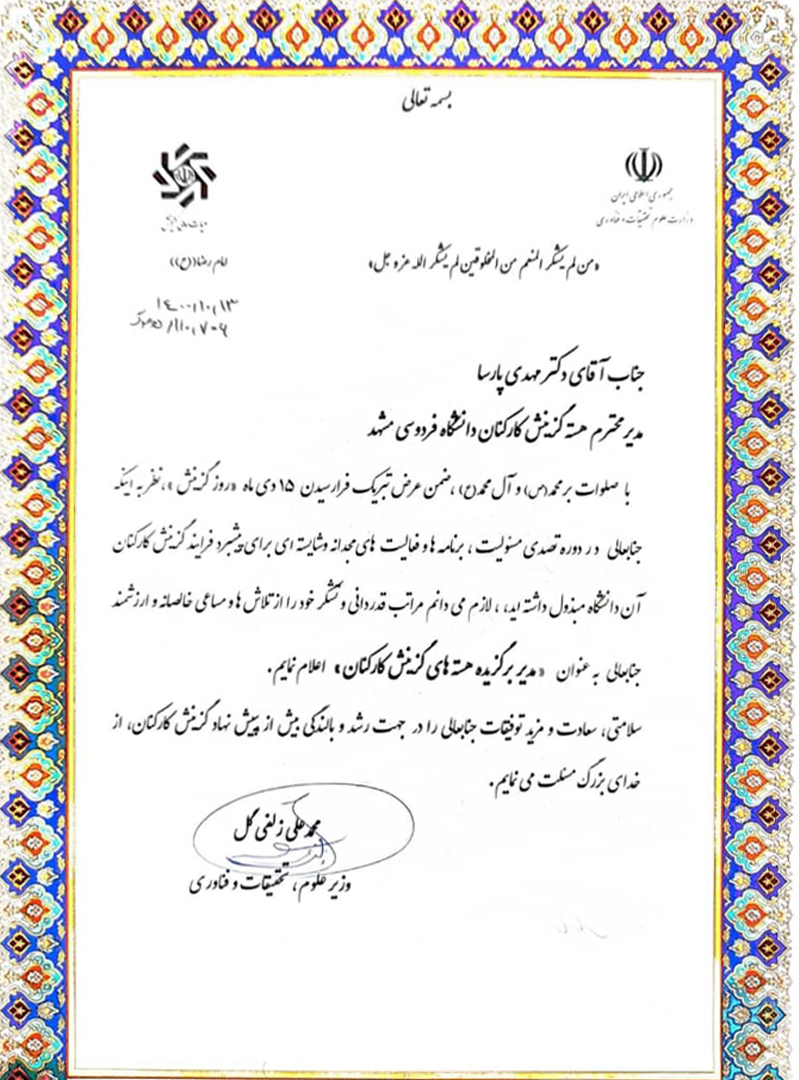 بسمه تعالی
جمهوری اسلامی ایران
وزارت علوم تحقیقات و فناوری
امام رضا((ع))
«من لم یشکر المنعم من المخلوقین لم یشکر الله عزوجل»
۱۴۰۰،۱۰،۱۳
جناب آقای دکتر مهدی پارسا
مدیر محترم هسته گزینش کارکنان دانشگاه فردوسی مشهد
با صلوات بر محمد(ص) و آل محمد(ع) ،ضمن عرض تبریک فرارسیدن ۱۵ دی ماه «روز گزینش »،نظر به اینکه
جنابعالی در دوره تصدی مسئولیت ، برنامه ها و فعالیت های مجدانه و شایسته ای برای پیشبرد فرایند گزینش کارکنان
آن دانشگاه مبذول داشته اید، ، لازم می دانم مراتب قدردانی و تشکر خود را از تلاش ها و مساعی خالصانه و ارزشمند
جنابعالی به عنوان «مدیر برگزیده هسته های گزینش کارکنان» اعلام نمایم.
سلامتی، سعادت و مزید توفیقات جنابعالی را در جهت رشد و بالندگی بیش از پیش نهاد گزینش کارکنان، از
خدای بزرگ مسئلت می نمایم.
محمد علی زلفی گل
وزیر علوم ، تحقیقات و فناوری